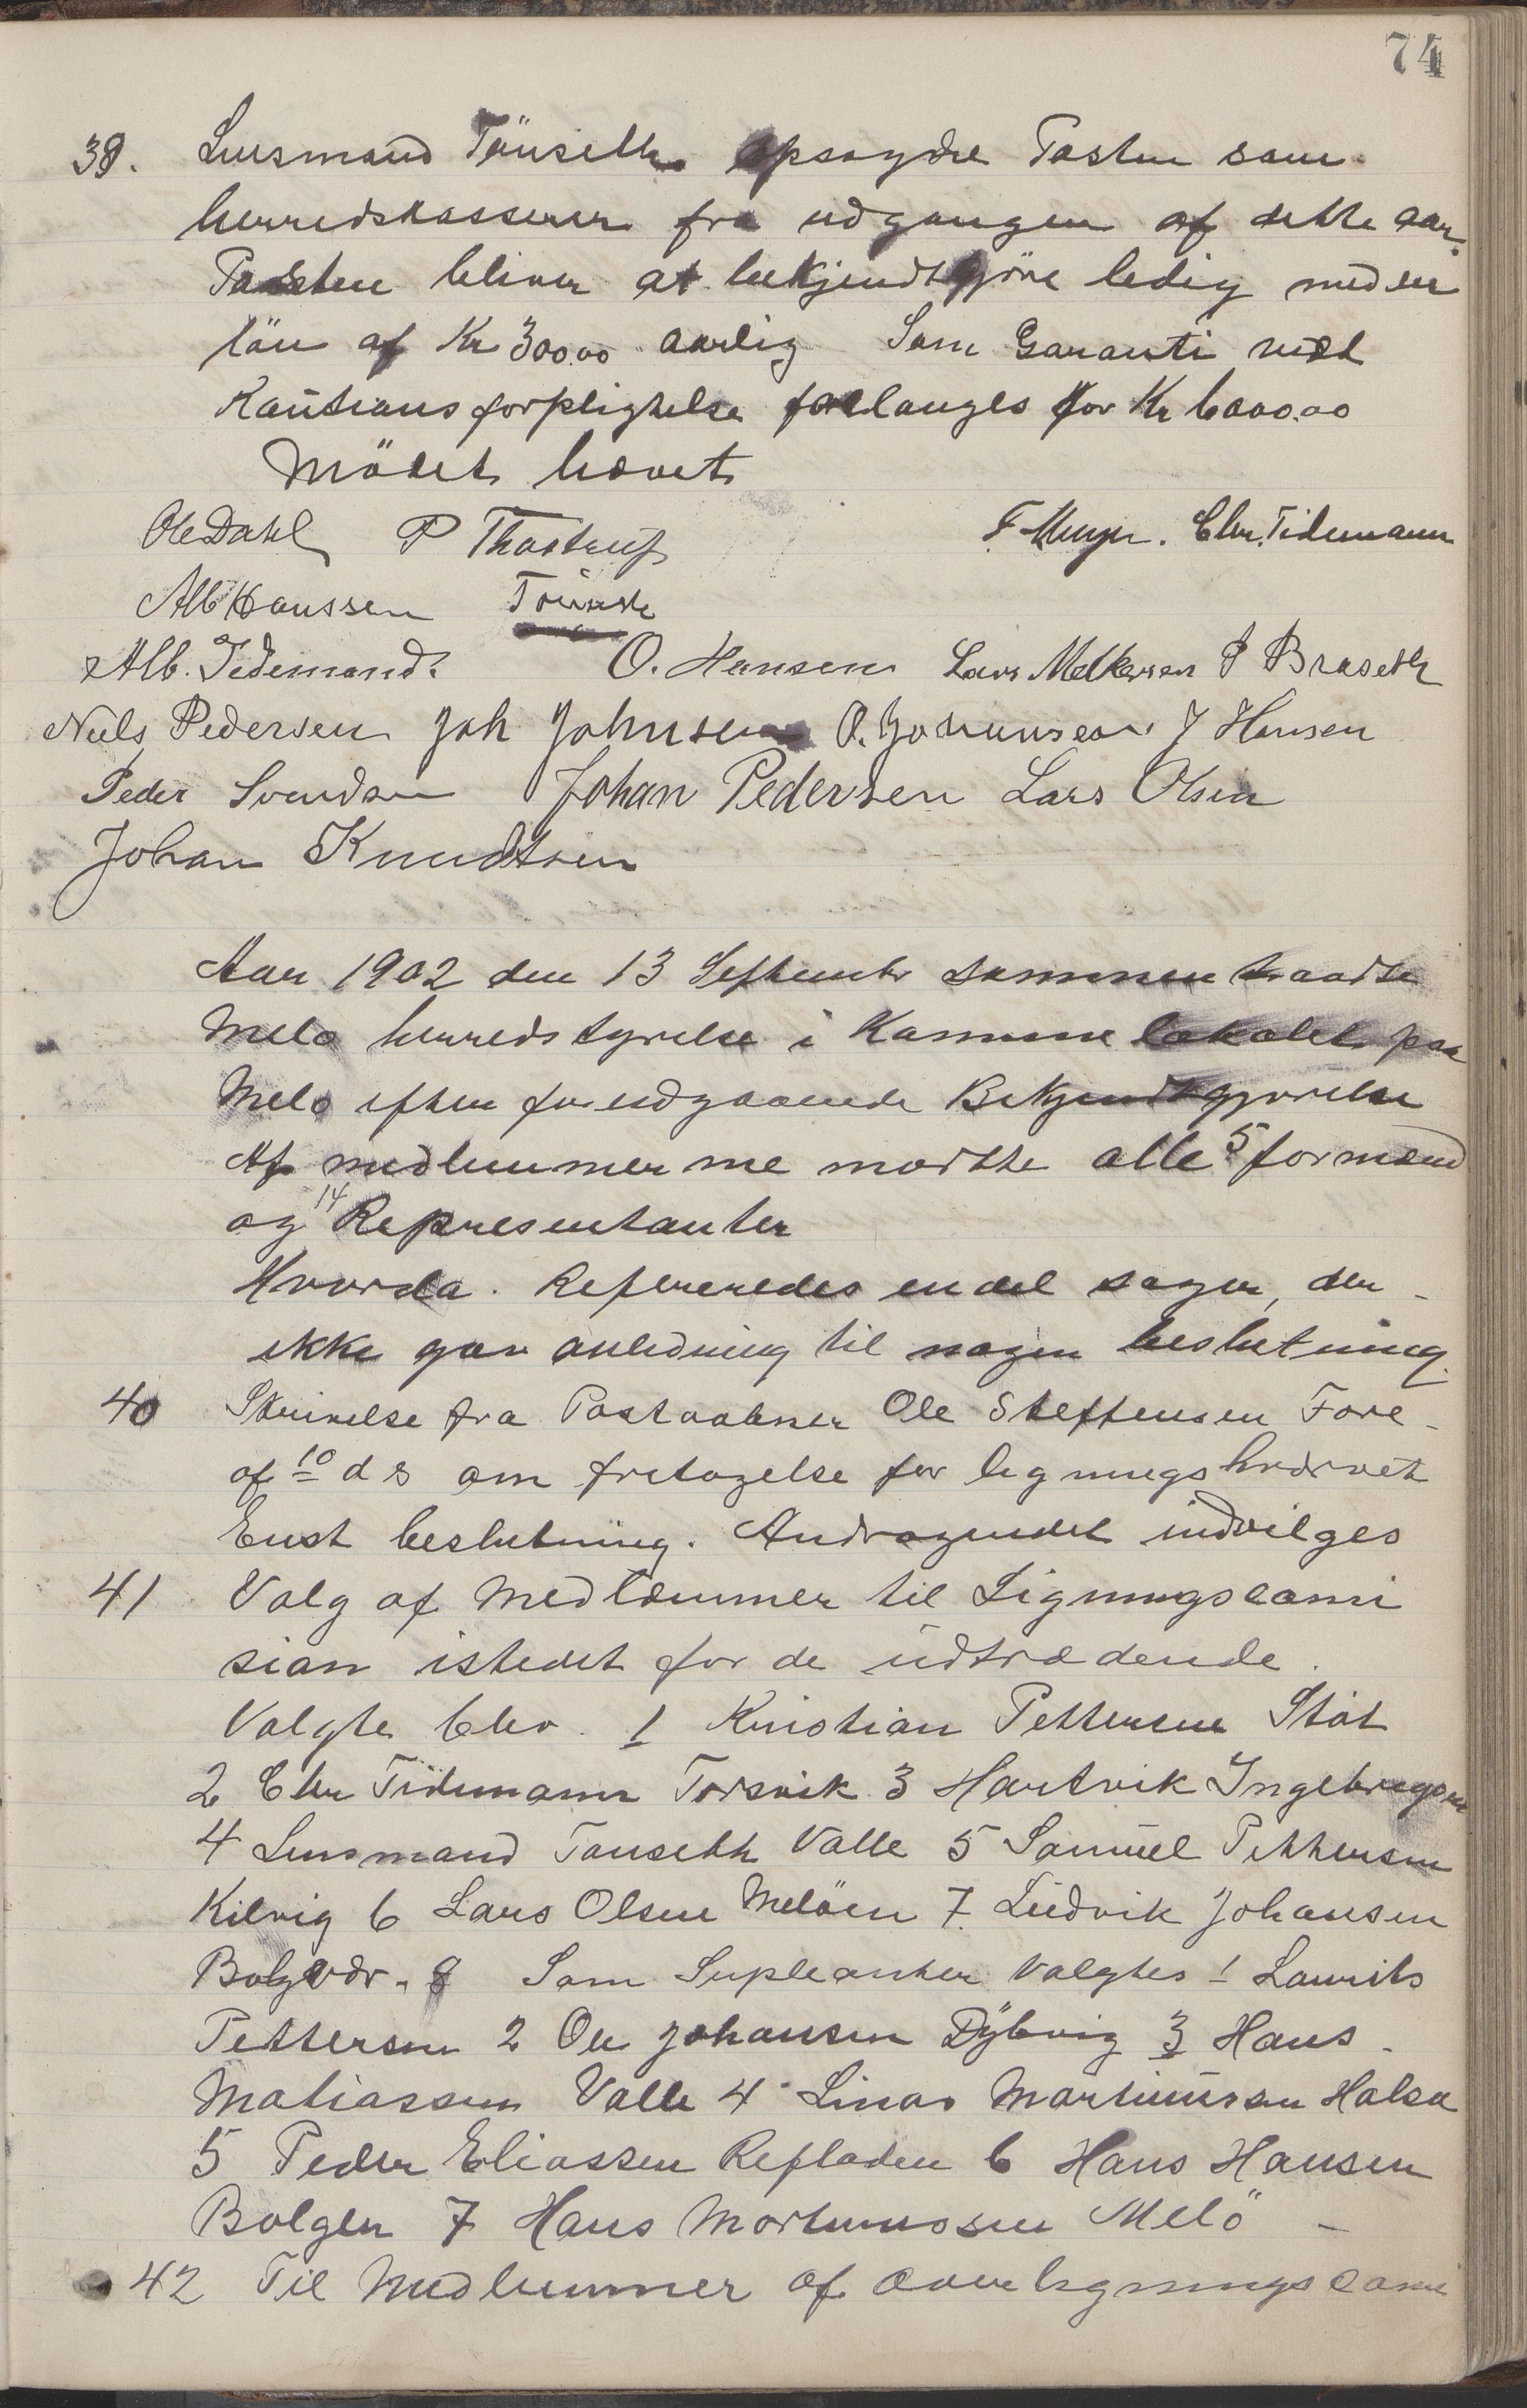 74
39. Lensmand Tönseth opsagde Posten som
herredskasserer fra udgangen af dette aar.
Posten bliver at bekjendtgjöre ledig med en
lön af Kr 300.00 aarlig Som Garanti ved
Kautionsforpligtelse forlanges for Kr 6000.00
Mödet hævet
Ole Dahl P Thostrup F. Meyer. Chr. Tidemann
Alb Hanssen Tönseth
Alb. Tidemand. O. Hansen Lars Melkersen P Braseth
Niels Pedersen Joh Johnsen O. Johannsen. J Hansen
Peder Svendsen Johan Pedersen Lars Olsen
Johan Knudtsen
Aar 1902 den 13 Septembr sammentraadte
Melø herredstyrelse i Kommunelokalet paa
Melø efter forudgaaende Bekjendtgjørelse
Af medlemmerne mødte alle 5 formænd
og 14 Representanter
Hvorda. Refereredes endel sager, der
ikke gav anledning til nogen beslutning.
40 Skrivelse fra Postaabner Ole Steffensen Fore
af 10 ds om fritagelse for ligningshvervet
Enst beslutning. Andragendet indvilges
41 Valg af Medlemmer til Ligningscomi
sion istedet for de udtrædende.
Valgte blev. 1 Kristian Pettersen Stöt
2 Chr Tidemann Torsvik 3 Hartvik Ingebrigtsen
4 Lensmand Tonseth Valle 5 Samuel Pettersen
Kilvig 6 Lars Olsen Melöen 7. Ludvik Johansen
Bolgvær. 8 Som Supleanter valgtes 1 Laurits
Pettersen 2 Ole Johansen Dybvig 3 Hans
Matiassen Valle 4 Linas Martinussen Halsa
5 Peder Eliassen Refladen 6 Hans Hansen
Bolgen 7 Hans Mortinussen Melö -
42 Til Medlemmer af Overligningscomi